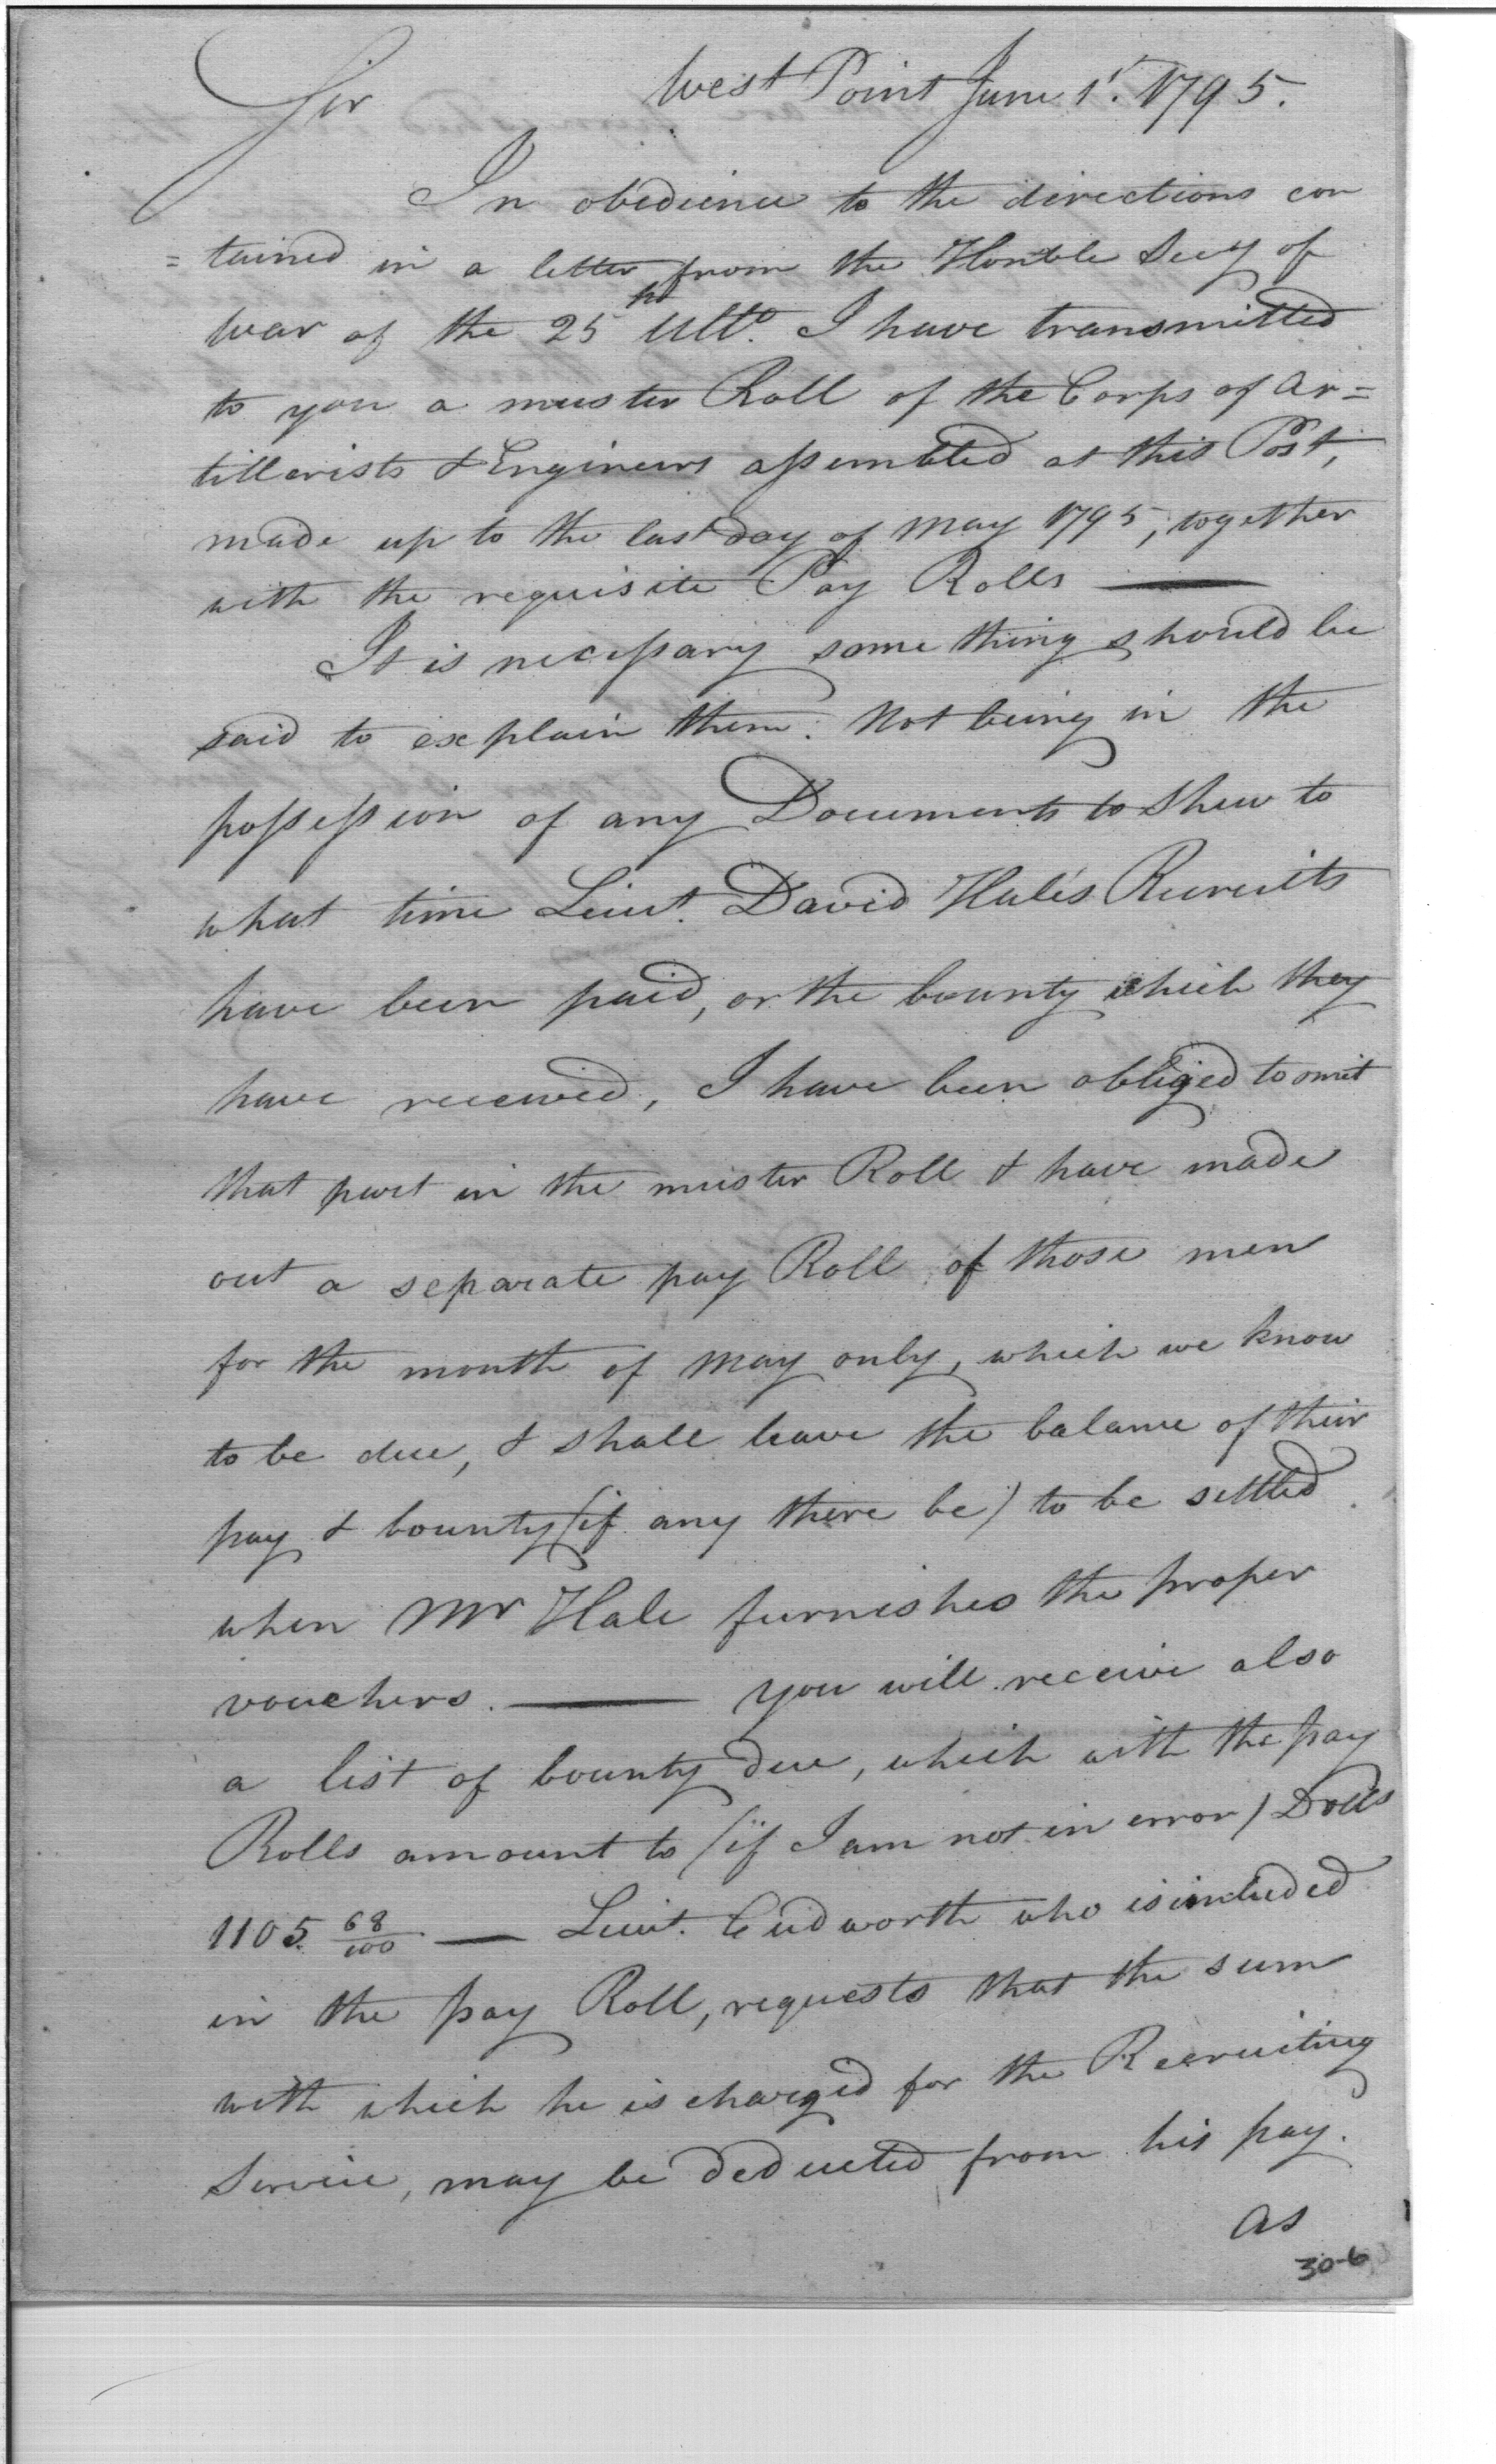 Sir West Point June 1st. 1795.
In obedience to the directions con
= tained in a letter from the Honble Secy of
War of the 25th Ulto. I have transmitted
to you a muster Roll of the Corps of Ar=
tillerists & Engineers assembled at this Post,
made up to the last day of May 1795, together
with the requisite Pay Rolls —
It is necessary some thing should be
said to explain them. Not being in the
possession of any Documents to shew to
what time Lieut. David Hale's Recruits
have been paid, or the bounty which they
have received, I have been obliged to omit
that part in the muster Roll & have made
out a separate pay Roll of those men
for the month of May only, which we know
to be due, & shall leave the balance of their
pay & bounty (if any there be) to be settled
when Mr Hale furnishes the proper
vouchers. — You will receive also
a list of bounty due, which with the pay
Rolls amount to (if I am not in error) Dolls
1105. 68/100 — Lieut. Cudworth who is included
in the pay Roll, requests that the sum
with which he is charged for the Recruiting
Service, may be deducted from his pay.
as
30-6